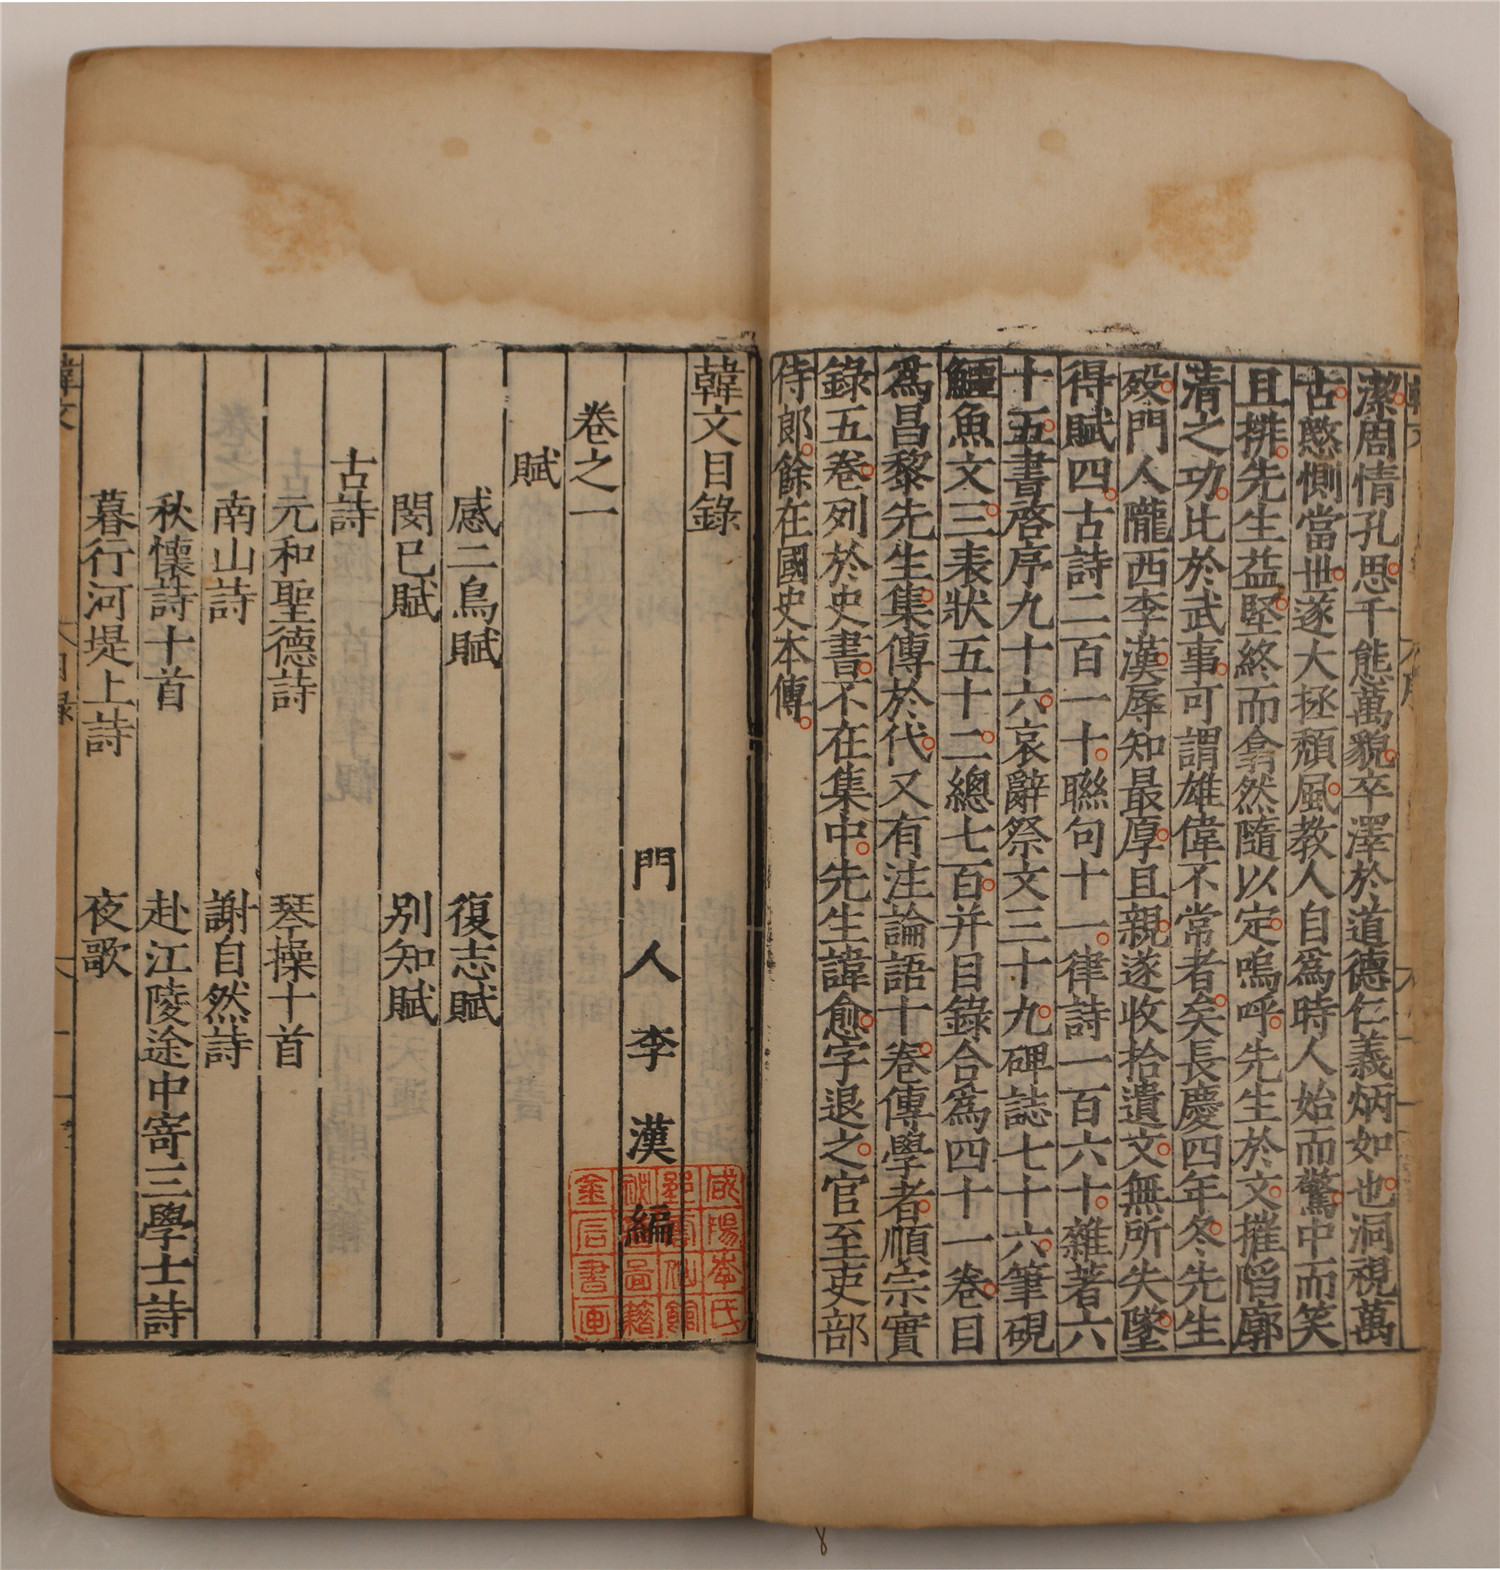 潔周情孔思千態萬貌卒澤於道德仁義炳如也洞視萬
古愍惻當世遂大拯頹風教人自爲時人始而驚中而笑
且排先生益堅終而翕然隨以定嗚呼先生於文摧陷廓
清之功比於武事可謂雄偉不常者矣長慶四年冬先生
歿門人隴西李漢辱知最厚且親遂收拾遺文無所失墜
得賦四古詩二百一十聯句十一律詩一百六十雜著六
十五書啓序九十六哀辭祭文三十九碑誌七十六筆硯
鱷魚文三表狀五十二總七百并目錄合爲四十一卷目
爲昌黎先生集傳於代又有注論語十卷傳學者順宗實
錄五卷列於史書不在集中先生諱愈字退之官至吏部
侍郎餘在國史本傳
韓文目錄
門人李漢編
卷之一
賦
感二鳥賦 復志賦
閔已賦 別知賦
古詩
元和聖德詩 琴操十首
南山詩 謝自然詩
秋懷詩十首 赴江陵途中寄三學士詩
暮行河堤上詩 夜歌
韓文 目錄 一
咸陽李氏
圖籍
金石書画